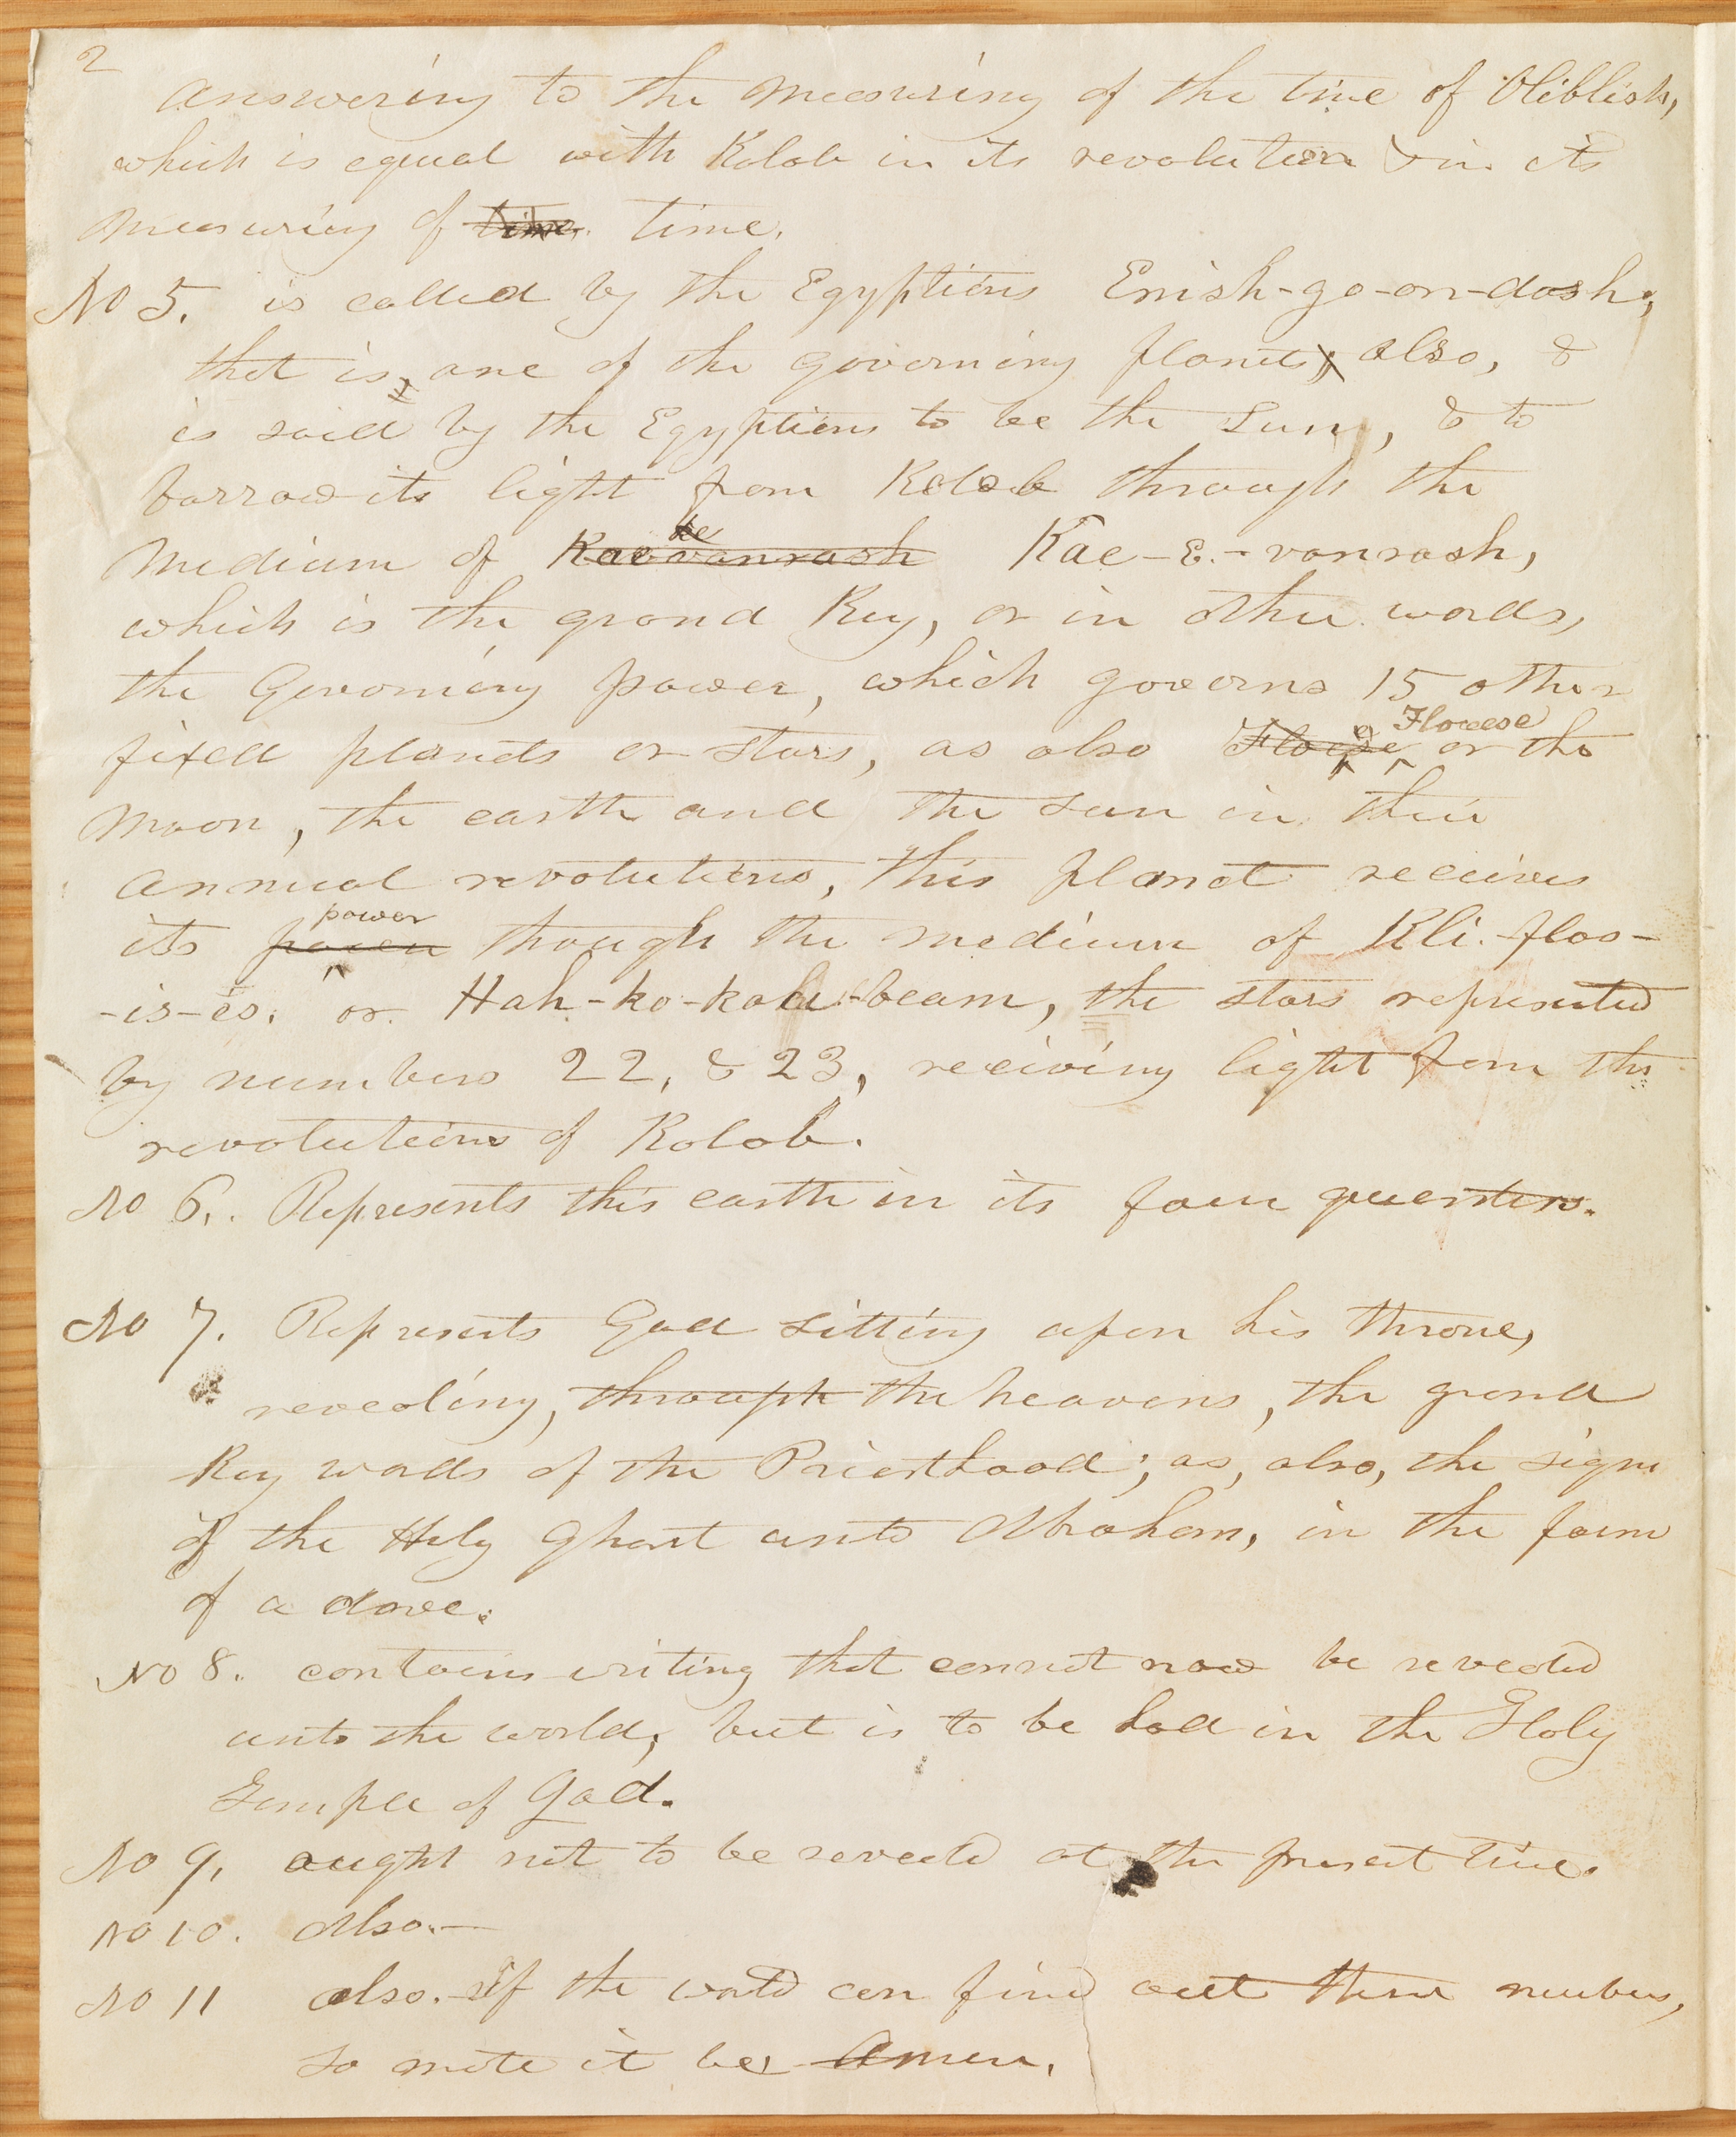 2
answering to the measuring of the time of Oliblish,
which is equal with Kolob in its revolution & in its
measuring of time time.
No 5. is called by the Egyptians Enish-go-on-dosh;
that is, one of the governing planets, also, &
is said by the Egyptians to be the Sun, & to
borrow its light from Kolob through the
medium of Kae vanrash Kae-E.-vanrash,
which is the grand Key, or in other words,
the Governing power, which governs 15 other
fixed planets or stars, as also Floeese or the
Moon, the earth and the sun in their
annual revolutions, this planet receives
its power through the medium of Kli-flos-
-is-es. or Hah-ko-kau-beam, the stars represented
by numbers 22, & 23, receiving light from the
revolutions of Kolob.
No 6. Represents this earth in its four quarters.
No 7. Represents God sitting upon his throne,
revealing, through the heavens, the grand
Key words of the Priesthood; as, also, the sign
of the Holy Ghost unto Abraham, in the form
of a dove.
No 8. contains writing that cannot now be revealed
unto the world, but is to be had in the Holy
Temple of God.
No 9, ought not to be reveald at the present time.
No 10. Also.—
No 11 also.- If the world can find out these numbers,
So mote it be Amen.